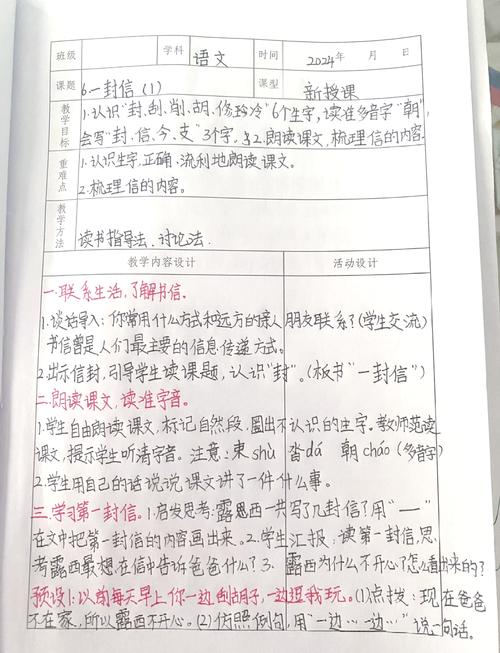 班级 学科 语文 时间 2024年 月 日
课题 6一封信（1） 课型 新授课
教学目标 1.认识"封、刮、削、胡、修、冷"6个生字，读准多音字"朝"，
会写"封、信、今、支"3个字，2.朗读课文，梳理信的内容。
重难点 1.认识生字，正确、流利地朗读课文。
2.梳理信的内容。
教学方法 读书指导法、讨论法.
教学内容设计 活动设计
一.联系生活，了解书信。
1.谈话导入：你常用什么方式和远方的亲人朋友联系？（学生交流）
书信曾是人们最主要的信息传递方式。
2.出示信封，引导学生读课题，认识"封"。（板书"一封信"）
二.朗读课文，读准字音。
1.学生自由朗读课文，标记自然段，圈出不认识的生字。教师范读
课文，提示学生听清字音。注意：束shù 沓dá 朝cháo（多音字）
2.学生用自己的话说说课文讲了一件什么事。
三.学习第一封信。1.启发思考：露西一共写了几封信？用"——"
在文中把第一封信的内容画出来。2.学生汇报：读第一封信，思
考露西最想在信中告诉爸爸什么？3.露西为什么不开心？怎么看出来的？
预设1：以前每天早上你一边刮胡子，一边逗我玩。(1)点拨：现在爸爸
不在家，所以露西不开心。(2)仿照例句，用"一边……一边……"说一句话。